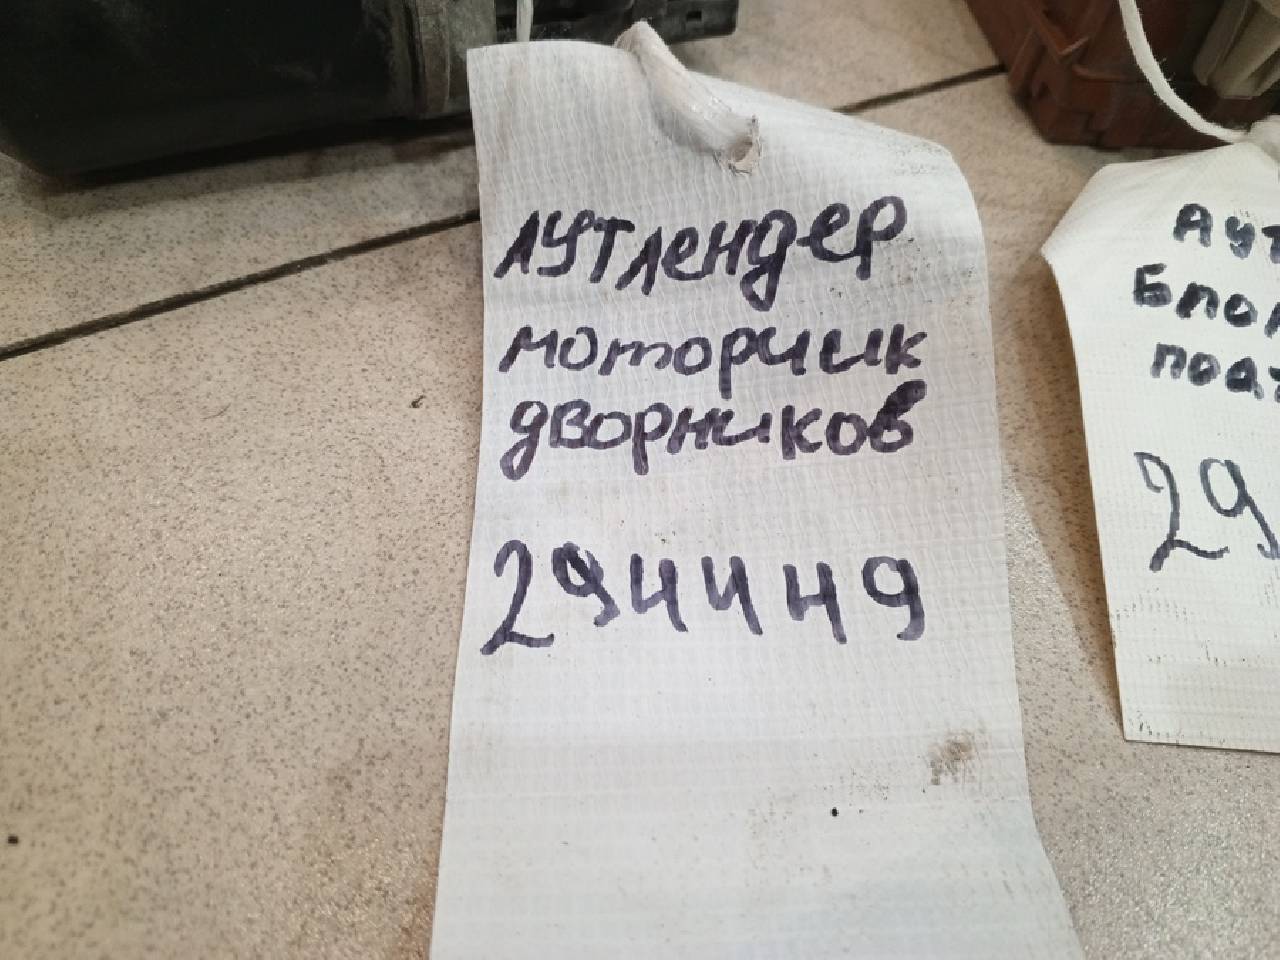 Аутлендер
моторчик
дворников
294449
Аут
Блок
29